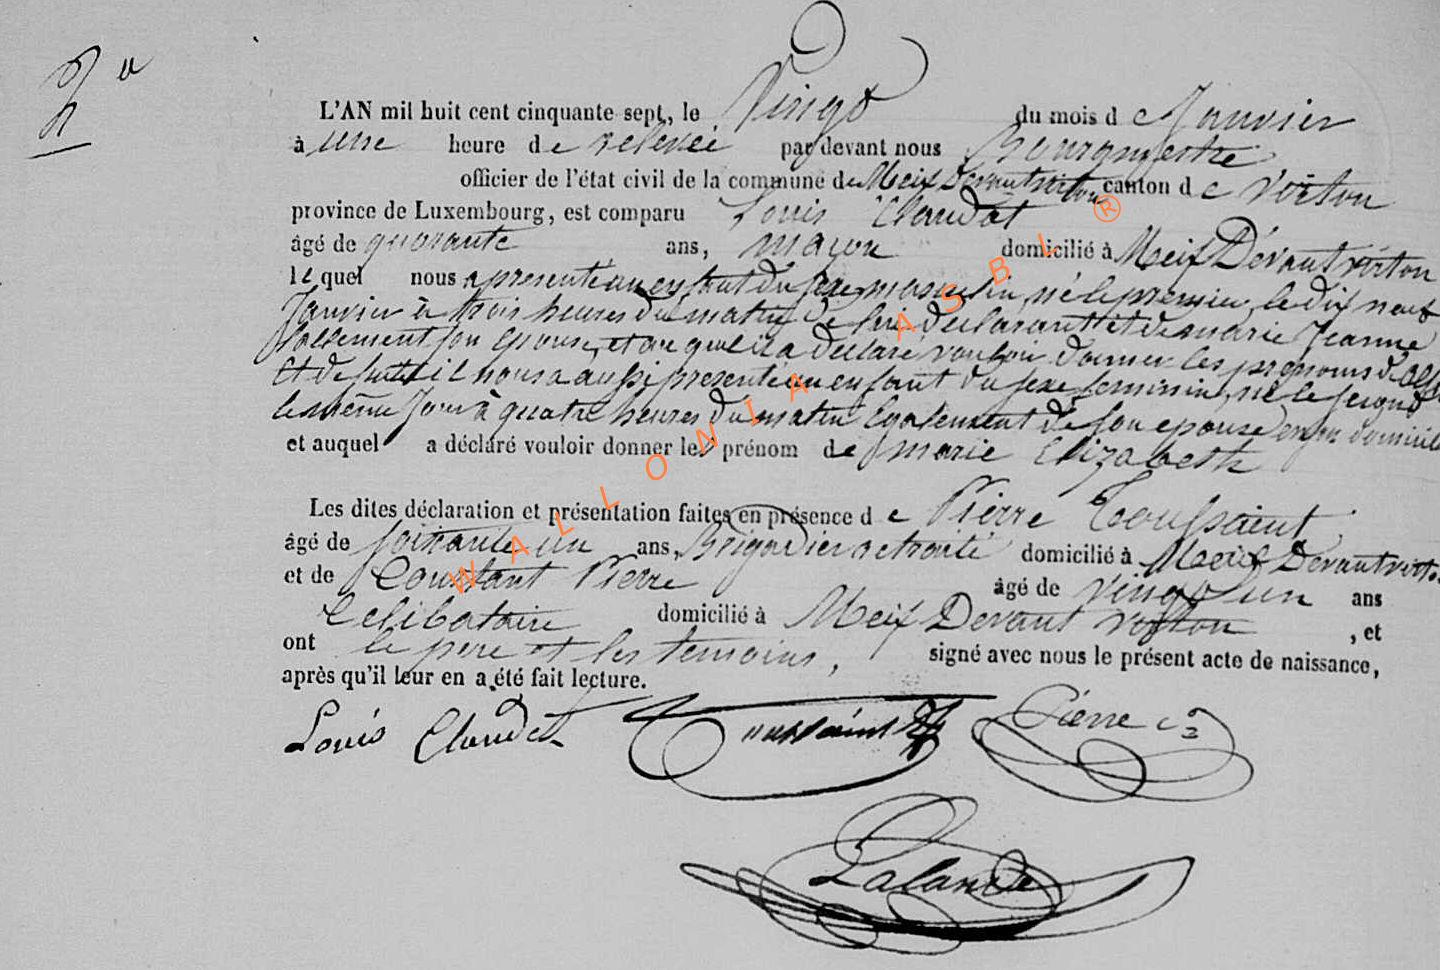 2
L'AN mil huit cent cinquante sept, le Vingt du mois de Janvier
à une heure de relevée par devant nous Bourgmestre
officier de l'état civil de la commune de Meix Devant virton canton de Virton
province de Luxembourg, est comparu Louis Claudot
âgé de quarante ans, maçon domicilié à Meix Dévant virton
lequel nous a presenté un enfant du sexe masculin, né le premier, le dix neuf
Janvier à trois heures du matin de lui déclarant et de marie Jeanne
son épouse, et au quel il a déclaré vouloir donner les prenoms d'
Et de suite il nous a aussi presenté un enfant du sexe feminin, né le second
le même Jour à quatre heures du matin également de son epouse en son domicile
et auquel a déclaré vouloir donner les prénom de marie Elizabeth
Les dites déclaration et présentation faites en présence de Pierre Toussaint
âgé de soixante un ans, Brigadier retraité domicilié à Meix Devant virton
et de Constant Pierre âgé de vingt un ans
Celibataire domicilié à Meix Devant virton, et
ont le pere et les temoins, signé avec nous le présent acte de naissance,
après qu'il leur en a été fait lecture.
Louis Claudot Toussaint Pierre C
Lalande
WALLONIA ASBL ®